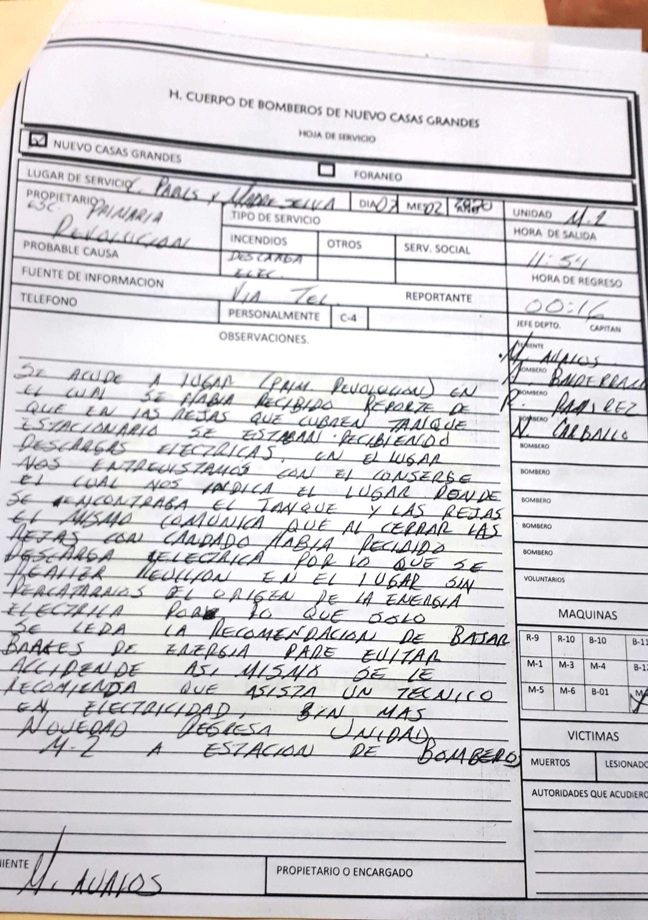 H. CUERPO DE BOMBEROS DE NUEVO CASAS GRANDES
HOJA DE SERVICIO
NUEVO CASAS GRANDES
FORANEO
LUGAR DE SERVICIO C. PARIS Y MADRESELVA DIA 07 MES 02
UNIDAD M-2
PROPIETARIO ESC. PRIMARIA REVOLUCION
TIPO DE SERVICIO
HORA DE SALIDA
11:54
PROBABLE CAUSA
INCENDIOS OTROS SERV. SOCIAL
DESCARGA ELEC.
HORA DE REGRESO
00:16
FUENTE DE INFORMACION VIA TEL. REPORTANTE
TELEFONO PERSONALMENTE C-4
JEFE DEPTO. CAPITAN
OBSERVACIONES.
SE ACUDE A LUGAR (PRIM. REVOLUCION) EN
EL CUAL SE HABIA RECIBIDO REPORTE DE
QUE EN LAS REJAS QUE CUBREN TANQUE
ESTACIONARIO SE ESTABAN RECIBIENDO
DESCARGAS ELECTRICAS. EN EL LUGAR
NOS ENTREVISTAMOS CON EL CONSERGE
EL CUAL NOS INDICA EL LUGAR DONDE
SE ENCONTRABA EL TANQUE Y LAS REJAS
EL MISMO COMUNICA QUE AL CERRAR LAS
REJAS CON CANDADO HABIA RECIBIDO
DESCARGA ELECTRICA POR LO QUE SE
EN EL LUGAR SIN
PERCATARNOS DEL ORIGEN DE LA ENERGIA
ELECTRICA POR LO QUE SOLO
SE LEDA LA RECOMENDACION DE BAJAR
BRAKES DE ENERGIA PARE EVITAR
ACCIDENDE ASI MISMO SE LE
RECOMIENDA QUE ASISTA UN TECNICO
EN ELECTRICIDAD, SIN MAS
NOVEDAD REGRESA UNIDAD
M-2 A ESTACION DE BOMBEROS
M. AVALOS
BOMBERO
BOMBERO R. RAMIREZ
BOMBERO N. CARBALLO
BOMBERO
BOMBERO
BOMBERO
BOMBERO
BOMBERO
VOLUNTARIOS
MAQUINAS
R-9 R-10 B-10 B-11
M-1 M-3 M-4
M-5 M-6 B-01
VICTIMAS
MUERTOS LESIONADO
AUTORIDADES QUE ACUDIERO
NIENTE
M. AVALOS
PROPIETARIO O ENCARGADO